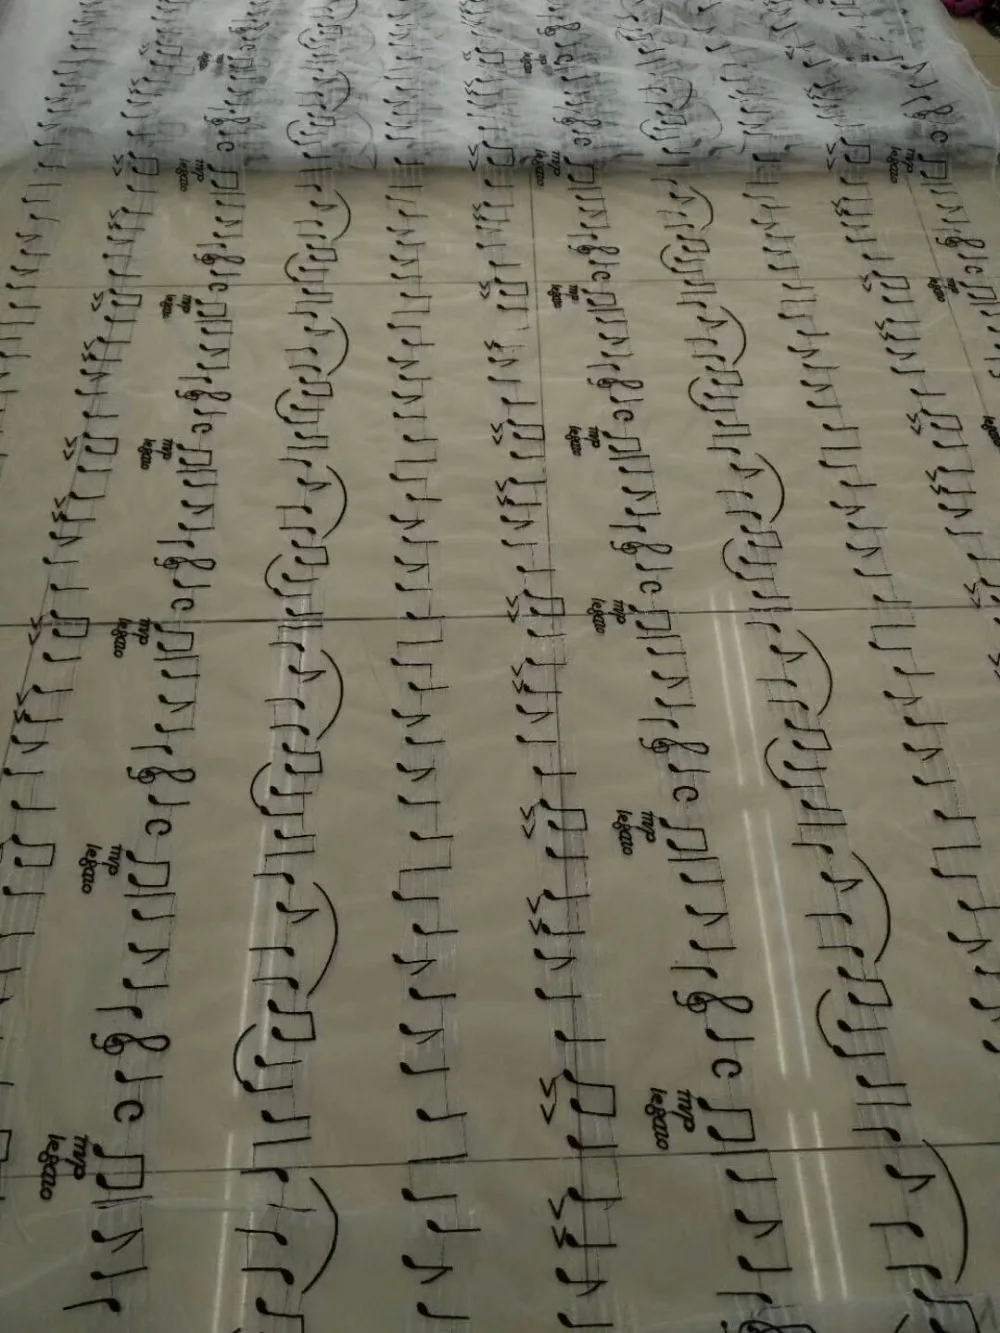 mp
legato
mp
legato
mp
legato
mp
legato
mp
legato
mp
legato
mp
legato
mp
legato
mp
legato
mp
legato
mp
legato
mp
legato